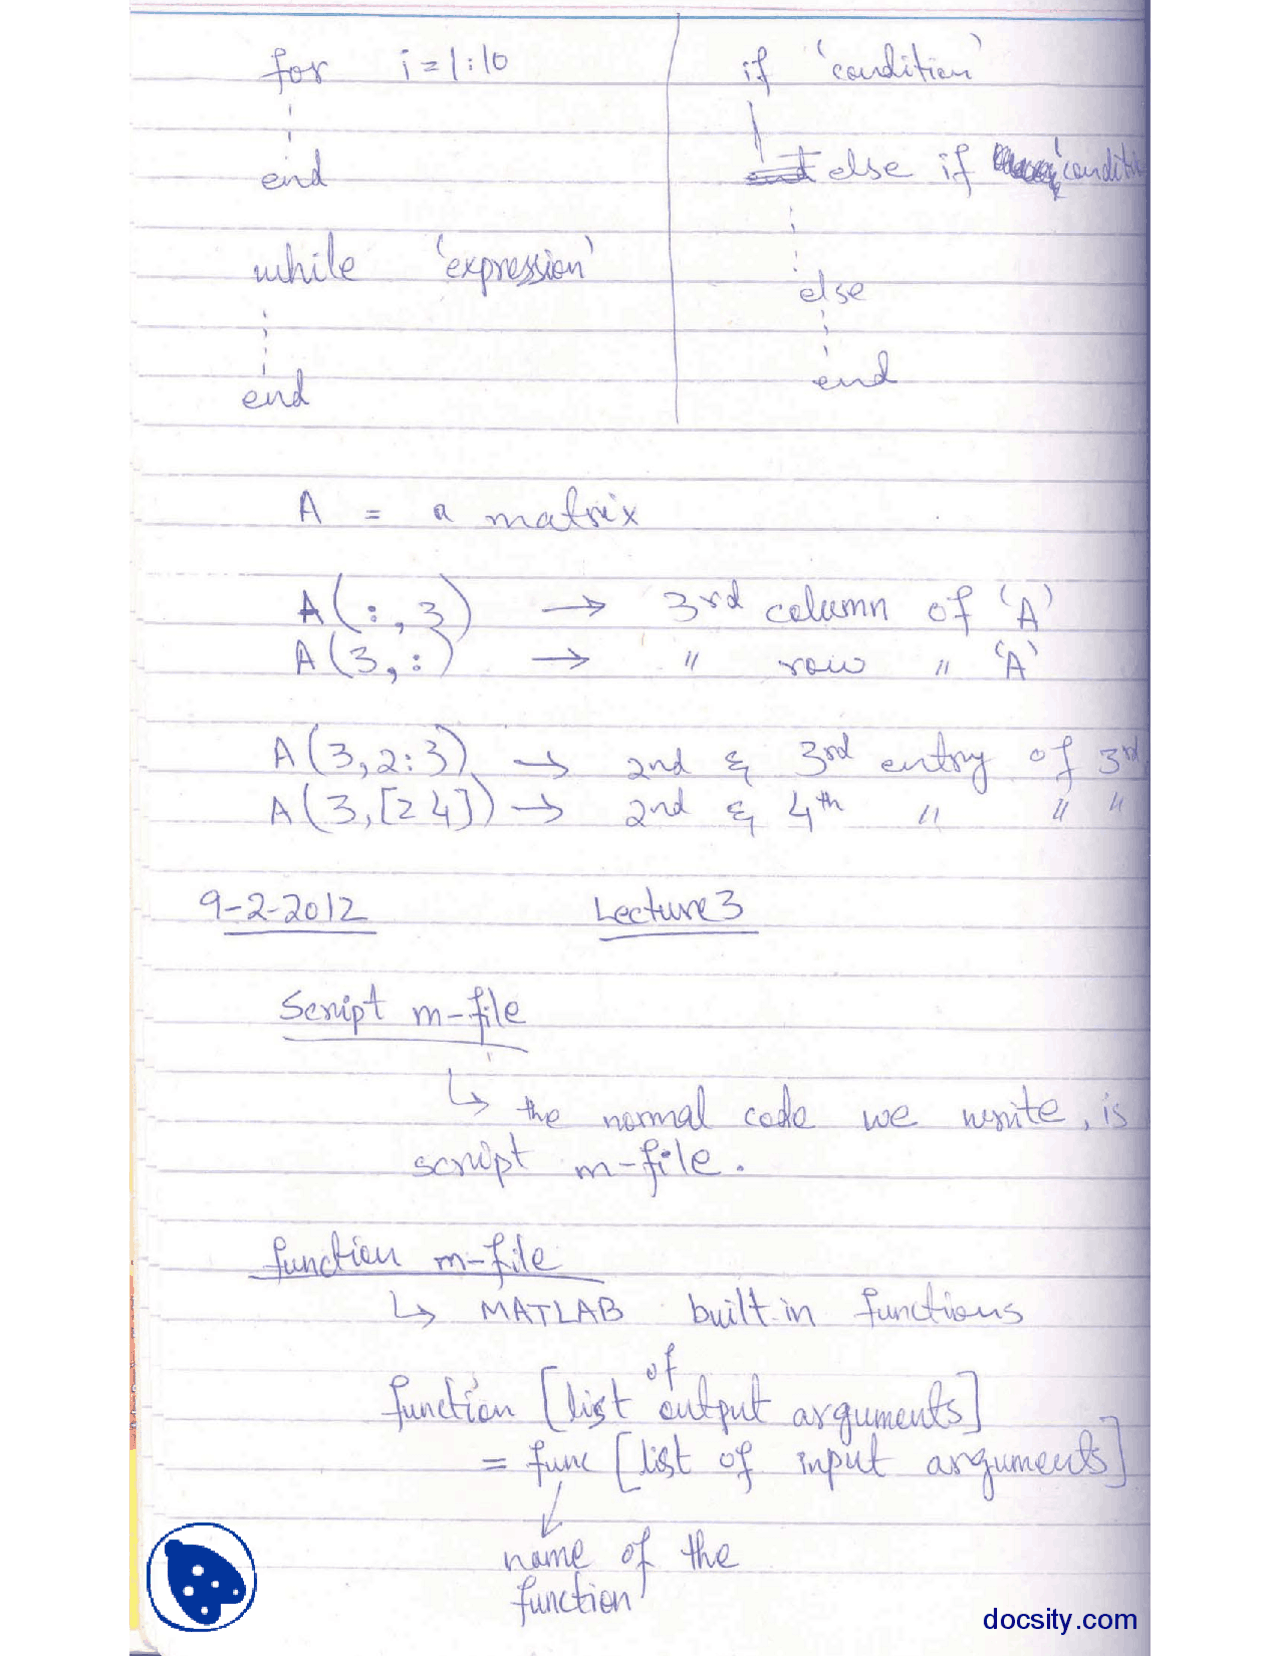 for i=1:10
end
while 'expression'
end
if 'condition'
else if 'conditi
else
end
A = a matrix
A(:,3) → 3rd column of 'A'
A(3,:) → " row " 'A'
A(3,2:3) → 2nd & 3rd entry of 3rd
A(3,[2 4]) → 2nd & 4th " " "
9-2-2012 Lecture 3
Script m-file
↳ the normal code we write, is
script m-file.
function m-file
↳ MATLAB built-in functions
function [list of output arguments]
= func [list of input arguments]
name of the
function
docsity.com